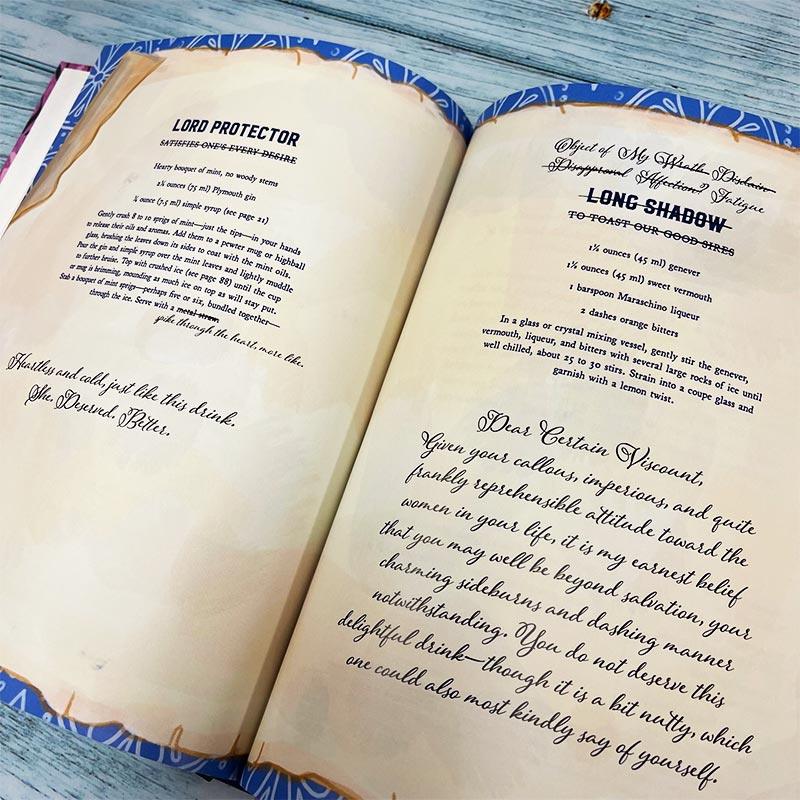 LORD PROTECTOR
SATISFIES ONE'S EVERY DESIRE
Hearty bouquet of mint, no woody stems
2½ ounces (75 ml) Plymouth gin
¼ ounce (7.5 ml) simple syrup (see page 21)
Gently crush 8 to 10 sprigs of mint—just the tips—in your hands
to release their oils and aromas. Add them to a pewter mug or highball
glass, brushing the leaves down its sides to coat with the mint oils.
Pour the gin and simple syrup over the mint leaves and lightly muddle
to further bruise. Top with crushed ice (see page 88) until the cup
or mug is brimming, mounding as much ice on top as will stay put.
Stab a bouquet of mint sprigs—perhaps five or six, bundled together—
through the ice. Serve with a metal straw.
spike through the heart, more like.
Heartless and cold, just like this drink.
She. Deserved. Better.
Object of My Wrath Disdain
Disapproval Affection? Fatigue
LONG SHADOW
TO TOAST OUR GOOD SIRES
1½ ounces (45 ml) genever
1½ ounces (45 ml) sweet vermouth
1 barspoon Maraschino liqueur
2 dashes orange bitters
In a glass or crystal mixing vessel, gently stir the genever,
vermouth, liqueur, and bitters with several large rocks of ice until
well chilled, about 25 to 30 stirs. Strain into a coupe glass and
garnish with a lemon twist.
Dear Certain Viscount,
Given your callous, imperious, and quite
frankly reprehensible attitude toward the
women in your life, it is my earnest belief
that you may well be beyond salvation, your
charming sideburns and dashing manner
notwithstanding. You do not deserve this
delightful drink—though it is a bit nutty, which
one could also most kindly say of yourself.